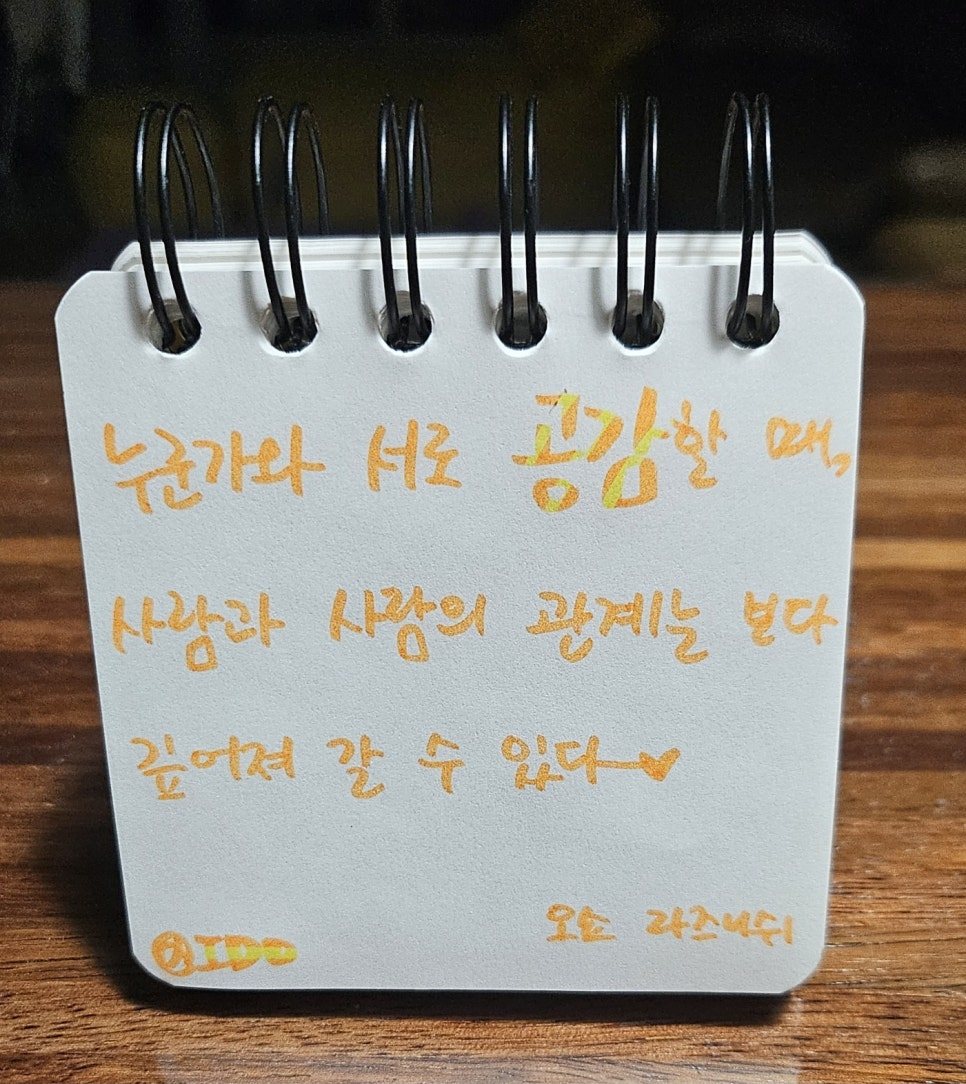 누군가와 서로 공감할 때,
사람과 사람의 관계는 보다
깊어져 갈 수 있다
오쇼 라즈니쉬